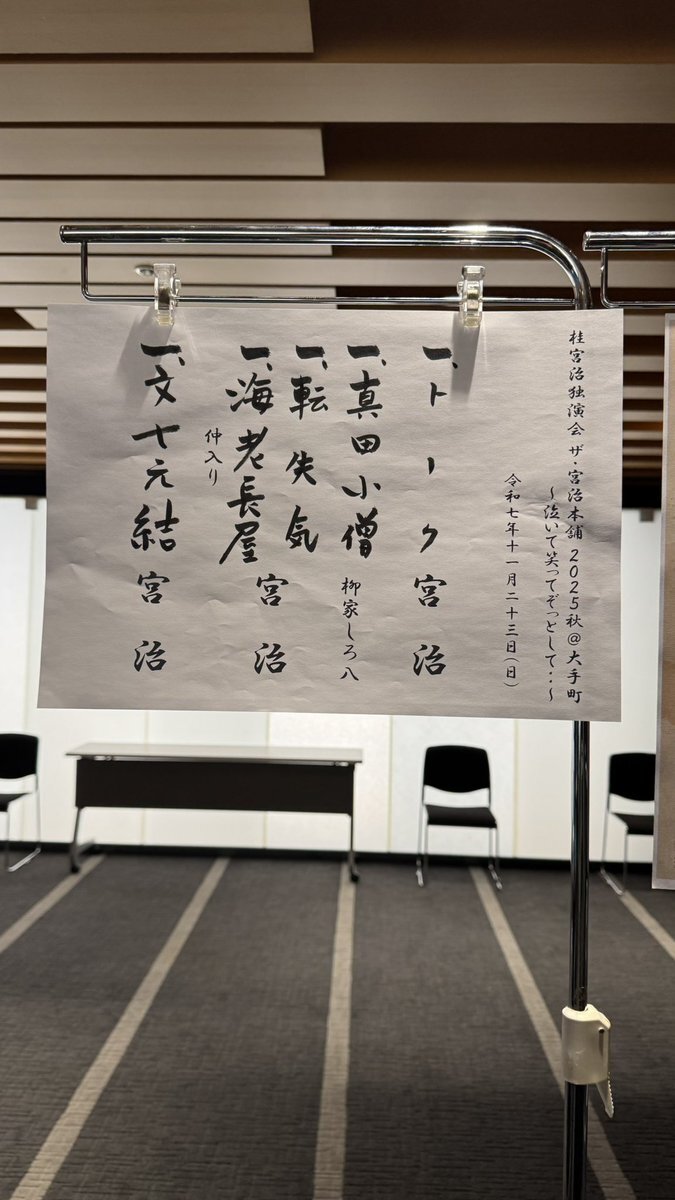 桂宮治独演会 ザ・宮治本舗 2025秋@大手町
～泣いて笑ってぞっとして・・～
令和七年十一月二十三日(日)
一、トーク 宮治
一、真田小僧 柳家しろ八
一、転失気
一、海老長屋 宮治
仲入り
一、文七元結 宮治